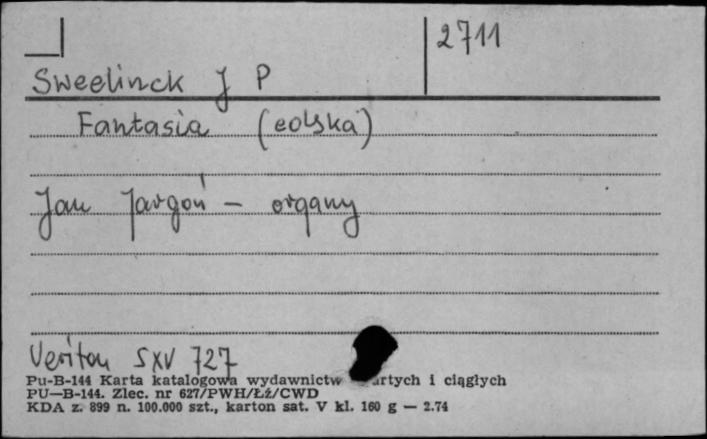 2711
Sweelinck J P
Fantasia (eolska)
Jan Jargoń – organy
Veriton SXV 727
Pu-B-144 Karta katalogowa wydawnictw artych i ciągłych
PU—B-144. Zlec. nr 627/PWH/Łż/CWD
KDA z. 899 n. 100.000 szt., karton sat. V kl. 160 g — 2.74